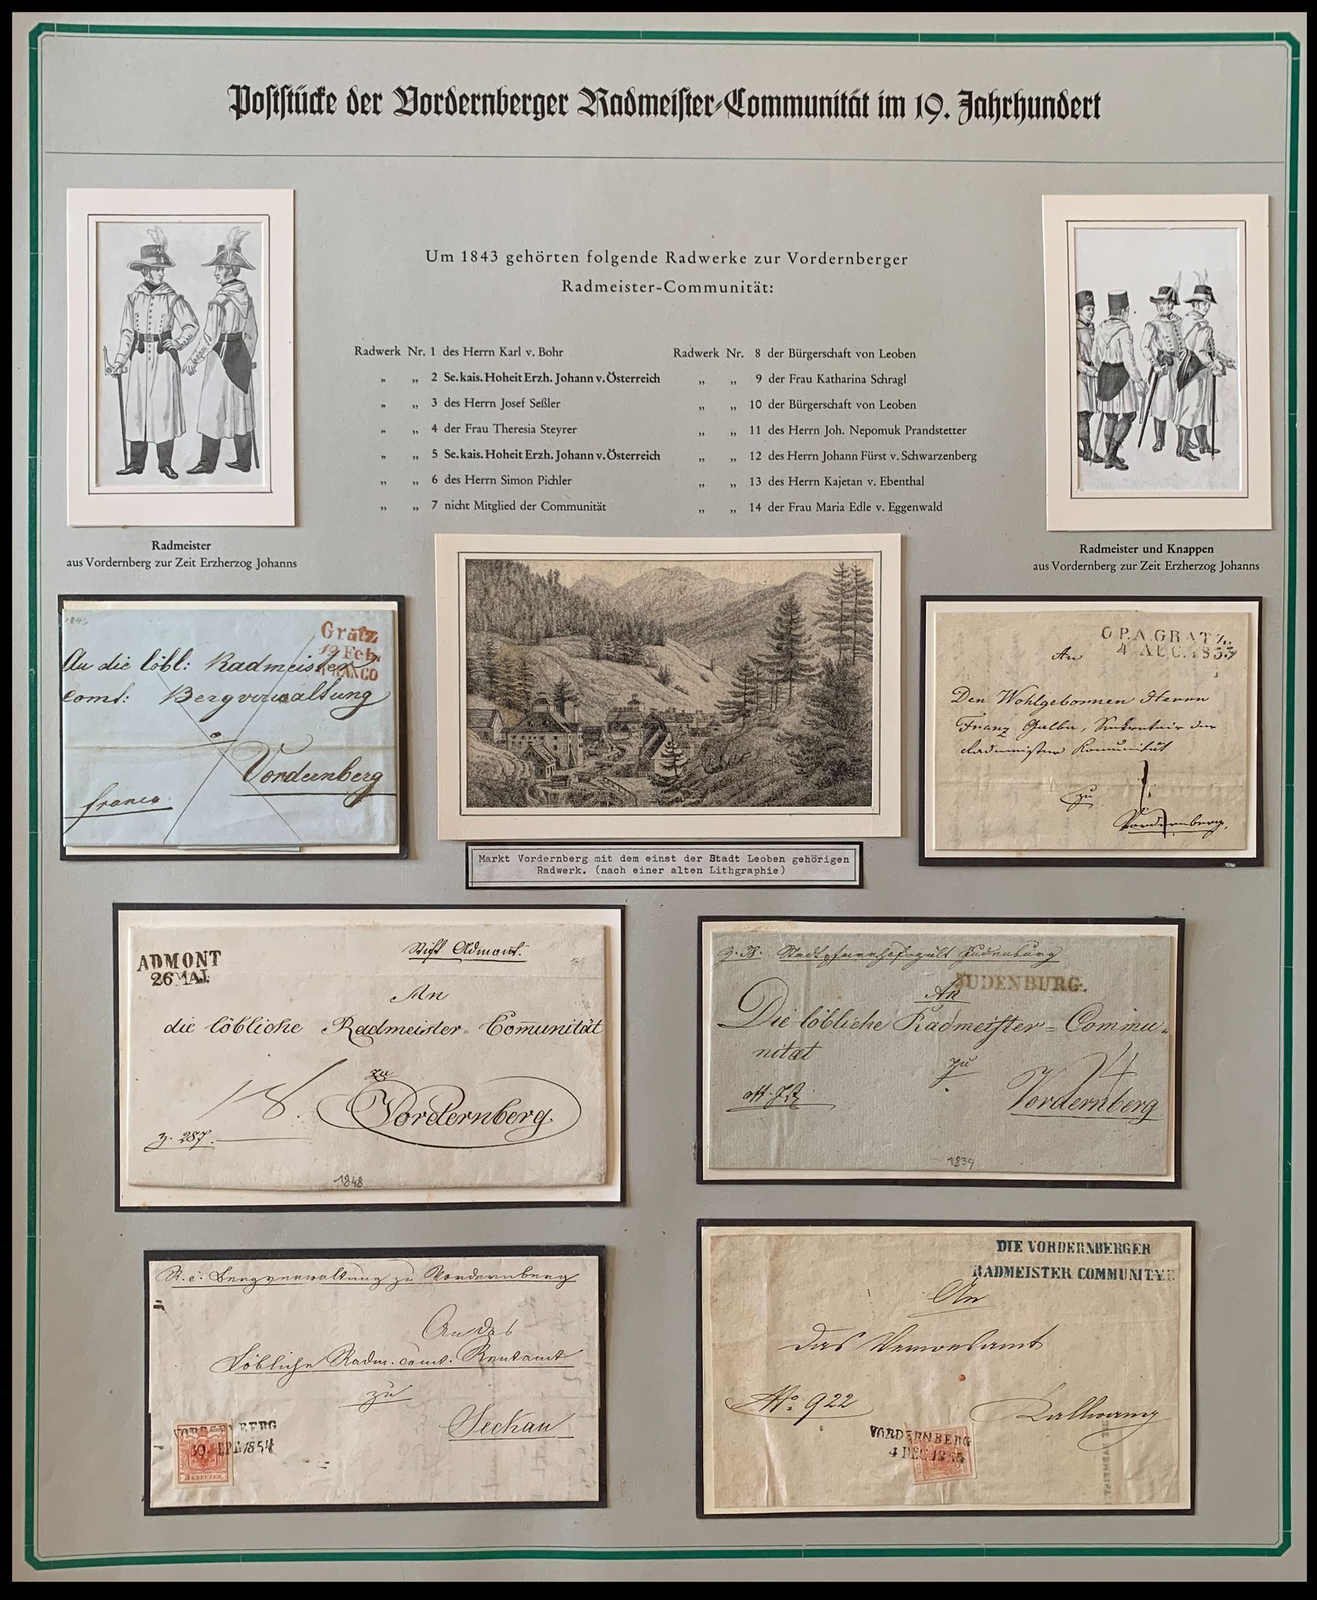 Poststücke der Vordernberger Radmeister-Communität im 19. Jahrhundert
Um 1843 gehörten folgende Radwerke zur Vordernberger
Radmeister-Communität:
Radwerk Nr. 1 des Herrn Karl v. Bohr
„ „ 2 Se. kais. Hoheit Erzh. Johann v. Österreich
„ „ 3 des Herrn Josef Seßler
„ „ 4 der Frau Theresia Steyrer
„ „ 5 Se. kais. Hoheit Erzh. Johann v. Österreich
„ „ 6 des Herrn Simon Pichler
„ „ 7 nicht Mitglied der Communität
Radwerk Nr. 8 der Bürgerschaft von Leoben
„ „ 9 der Frau Katharina Schragl
„ „ 10 der Bürgerschaft von Leoben
„ „ 11 des Herrn Joh. Nepomuk Prandstetter
„ „ 12 des Herrn Johann Fürst v. Schwarzenberg
„ „ 13 des Herrn Kajetan v. Ebenthal
„ „ 14 der Frau Maria Edle v. Eggenwald
Radmeister
aus Vordernberg zur Zeit Erzherzog Johanns
Radmeister und Knappen
aus Vordernberg zur Zeit Erzherzog Johanns
Gratz
19 Feb.
FRANCO
An die löbl: Radmeister
Comt: Bergverwaltung
Vordernberg
franco.
Markt Vordernberg mit dem einst der Stadt Leoben gehörigen
Radwerk. (nach einer alten Lithgraphie)
O.P.A. GRATZ.
4 AUG. 1853
An
Den Wohlgebornen Herrn
Franz Galba, Sekretair der
Radmeister Komunität
zu
Vordernberg.
ADMONT
26 MAI.
Stift Admont.
An
die löbliche Radmeister-Com̅unität
zu
Vordernberg
z. 287.
1848
JUDENBURG.
An
Die löbliche Radmeister=Commu=
nität
zu
Vordernberg
1839
K. k. Bergverwaltung zu Vordernberg
An das
Löbliche Radm. Comt. Rentamt
zu
Seckau
VORDERNBERG
1854
DIE VORDERNBERGER
RADMEISTER COMMUNITÆT
An
das Verwesamt
No. 922
Kallwang
VORDERNBERG
4 DEC